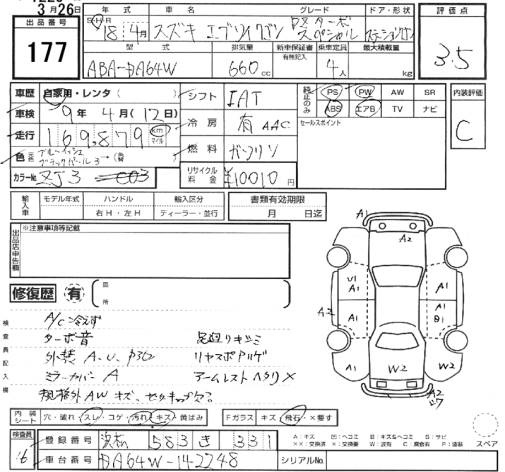 3月26日
出品番号
177
年式 車名 グレード ドア・形状
H 18年4月 スズキ エブリイワゴン PZターボスペシャル ステーションワゴン
型式 排気量 新車保証書 有無記入 乗車定員 最大積載量
ABA-DA64W 660cc 4人 kg
評価点
3.5
車歴 自家用・レンタ( )
車検 9年4月(12日)
走行 169,879 km マイル
色
カラーNo ZJ3
シフト IAT
冷房 有 AAC
燃料 ガソリン
リサイクル料金 ¥10010円
純正のみ PS PW AW SR
ABS エアB TV ナビ
セールスポイント
内装評価
C
輸入車 モデル年式 ハンドル 輸入区分
年 右H・左H ディーラー・並行
書類有効期限
月 日迄
出品店申告欄
※注意事項等記載
修復歴 有 箇所
検査員記入欄
A/C冷えず
ターボ音 足廻りキシミ
外装 A、U、 リヤスポハゲ
ミラーカバー A アームレストヘタリ×
規格外AWキズ、センターキャップ欠
A2
U1 A1 A1
A2 A1 A1 B1
W2 W2
A2
内装シート 穴・破れ・スレ・コゲ・汚れ・キズ・黄ばみ
Fガラス キズ・飛石・×要す
検査員
16
登録番号 浜松 583 き 331
車台番号 DA64W-142248
シリアルNo.
A:キズ E:エクボ B:キズ&ヘコミ S:サビ
××:交換済 ×:要交換 W:波有 C:腐食有 P:塗装
スペア